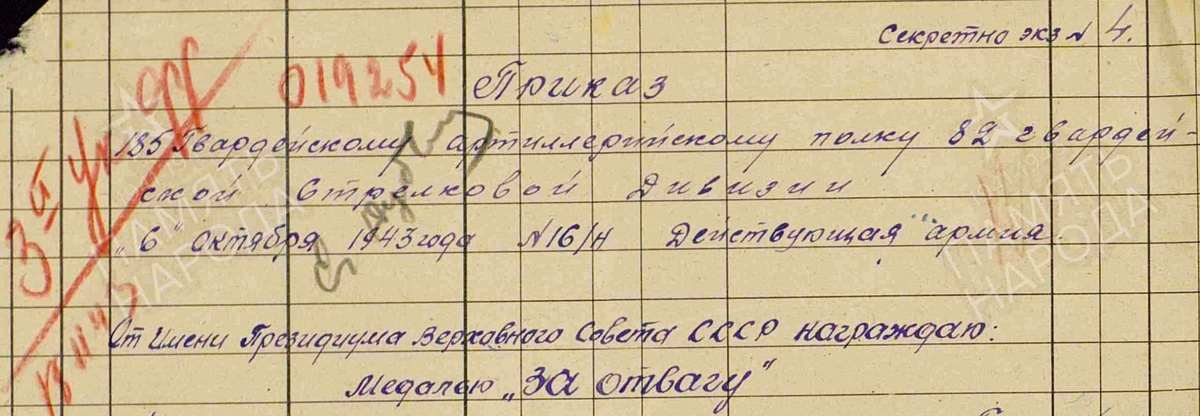 Секретно экз N 4.
019254
Приказ
185 Гвардейскому артиллерийскому полку 82 гвардей-
ской Стрелковой Дивизии
"6" октября 1943 года N 16/н Действующая армия.
От Имени Президиума Верховного Совета СССР награждаю:
Медалью "За отвагу"
ПАМЯТЬ
НАРОДА
ПАМЯТЬ
НАРОДА